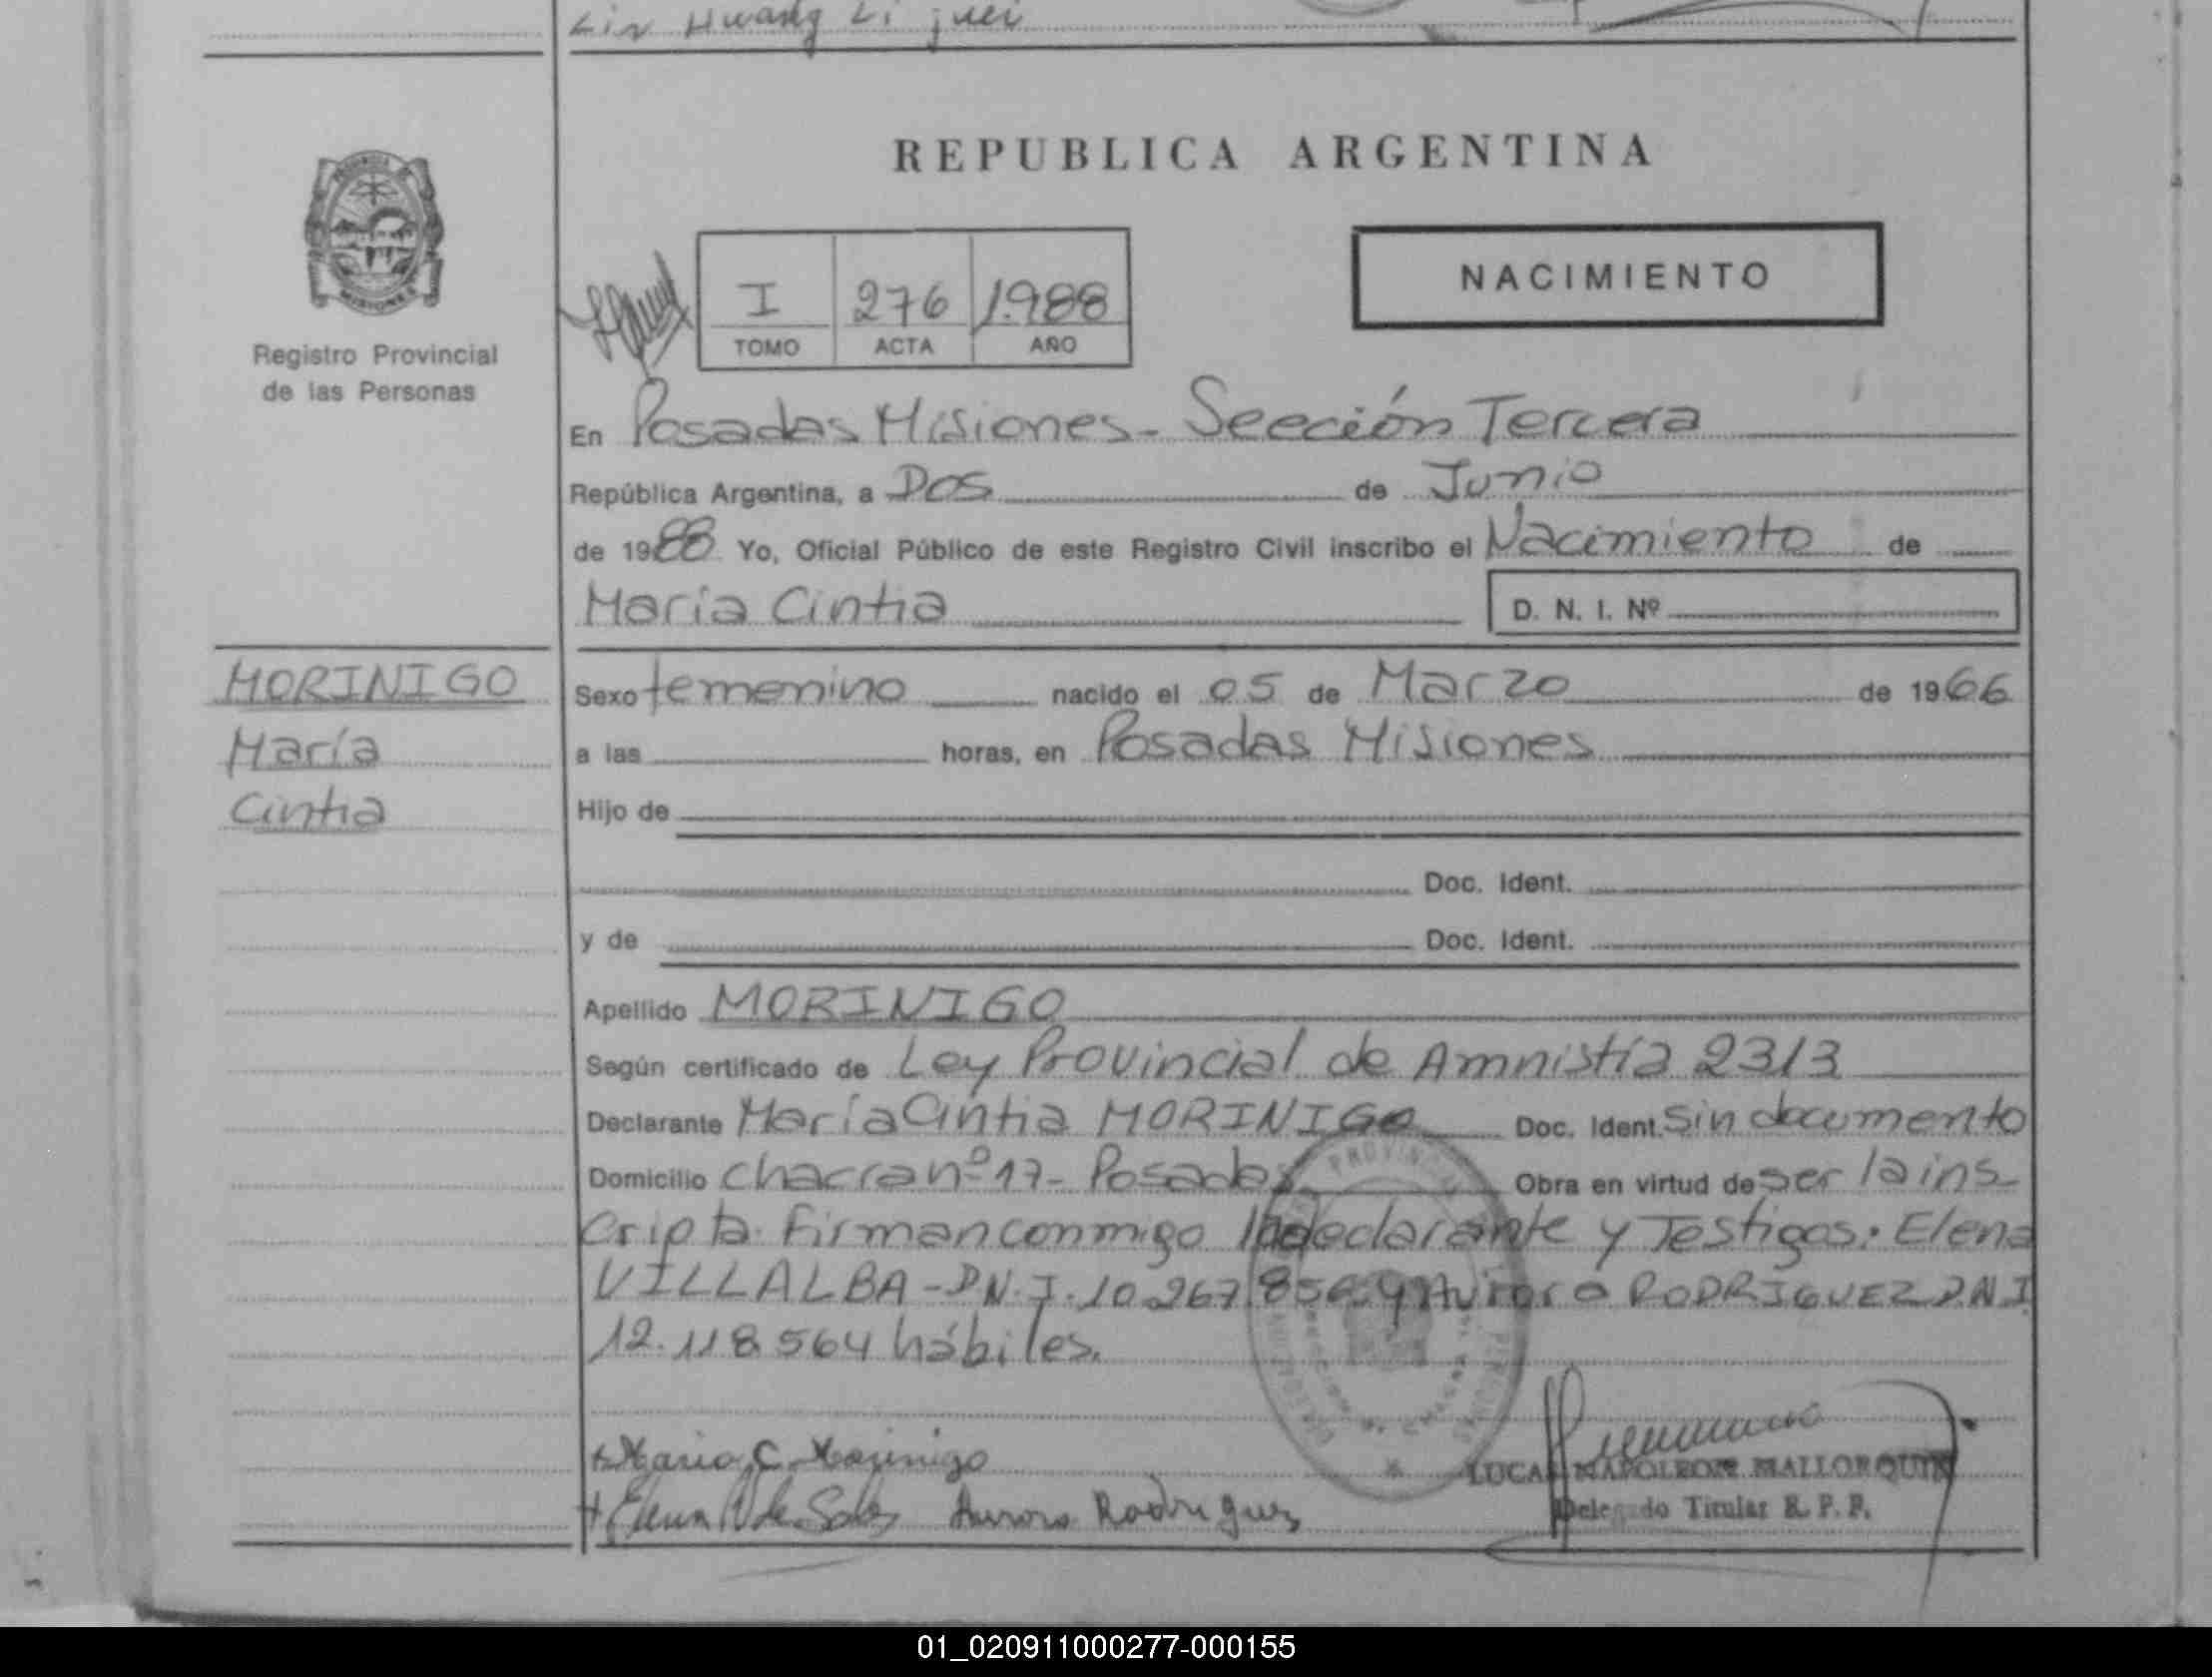 Lin Hwang Li juei
REPUBLICA ARGENTINA
NACIMIENTO
I 276 1.988
TOMO ACTA AÑO
Registro Provincial
de las Personas
En Posadas Misiones - Sección Tercera
República Argentina, a Dos de Junio
de 1988 Yo, Oficial Público de este Registro Civil inscribo el Nacimiento de
María Cintia D. N. I. Nº
MORINIGO
María
Cintia
Sexo femenino nacido el 05 de Marzo de 1966
a las horas, en Posadas Misiones
Hijo de
Doc. Ident.
y de Doc. Ident.
Apellido MORINIGO
Según certificado de Ley Provincial de Amnistía 2313
Declarante María Cintia MORINIGO Doc. Ident. Sin documento
Domicilio chacra nº 17 - Posadas Obra en virtud de ser la ins
cripta. Firman conmigo la declarante y Testigos: Elena
VILLALBA - D.N.I. 10.267.856 y Aurora RODRIGUEZ D.N.I
12.118.564 hábiles.
María C. Morinigo
Elena V. de Aurora Rodriguez
LUCAS NAPOLEON MALLORQUIN
Delegado Titular R. P. P.
01_020911000277-000155